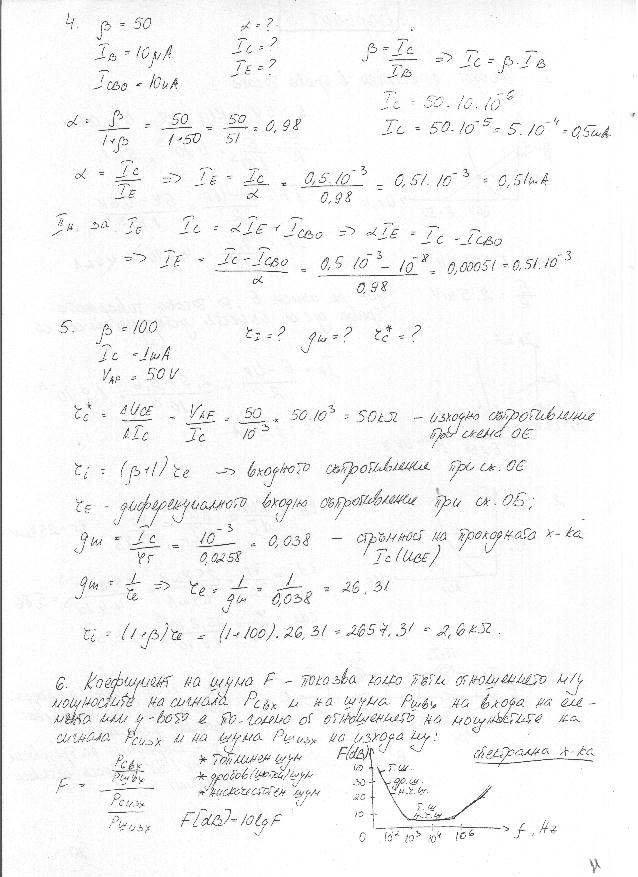 4. β = 50    α = ?
I_B = 10μA    I_C = ?
I_CBO = 10nA    I_E = ?
β = I_C / I_B => I_C = β·I_B
I_C = 50·10·10^-6
I_C = 50·10^-5 = 5·10^-4 = 0,5mA
α = β / (1+β) = 50 / (1+50) = 50 / 51 = 0,98
α = I_C / I_E => I_E = I_C / α = 0,5·10^-3 / 0,98 = 0,51·10^-3 = 0,51mA
II н. за I_E  I_C = αI_E + I_CBO => αI_E = I_C - I_CBO
=> I_E = (I_C - I_CBO) / α = (0,5·10^-3 - 10^-8) / 0,98 = 0,00051 = 0,51·10^-3
5. β = 100    r_I = ?  gm = ?  r_c* = ?
I_C = 1mA
V_AF = 50V
r_c* = ΔU_CE / ΔI_C = V_AF / I_C = 50 / 10^-3 = 50·10^3 = 50kΩ – изходно съпротивление
при схема ОЕ
r_i = (β+1)r_e -> входното съпротивление при сх. ОЕ
r_E - диференциалното входно съпротивление при сх. ОБ;
gm = I_C / φ_T = 10^-3 / 0,0258 = 0,038 – стръмност на проходната х-ка
I_C(U_BE)
gm = 1 / r_e => r_e = 1 / gm = 1 / 0,038 = 26,31
r_i = (1+β)r_e = (1+100)·26,31 = 2657,31 = 2,6kΩ.
6. Коефициент на шума F – показва колко пъти отношението м/у
мощностите на сигнала P_свх и на шума P_швх на входа на еле-
мента или у-вото е по-голямо от отношението на мощностите на
сигнала P_сизх и на шума P_шизх на изхода му:
F = (P_свх / P_швх) / (P_сизх / P_шизх)
* топлинен шум
* дробов (шотки) шум
* нискочестотен шум
F[dB] = 10lgF
F(dB)
спектрална х-ка
40
30
20
10
0
т.ш.
др.ш.
н.ч.ш.
т.ш.
10^2 10^3 10^4 10^6
f, Hz